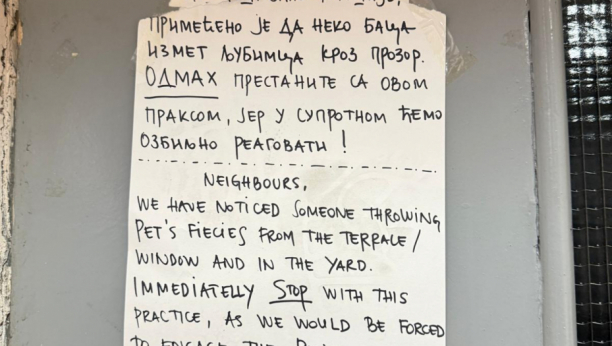 ПРИМЕЋЕНО ЈЕ ДА НЕКО БАЦА
ИЗМЕТ ЉУБИМЦА КРОЗ ПРОЗОР.
ОДМАХ ПРЕСТАНИТЕ СА ОВОМ
ПРАКСОМ, ЈЕР У СУПРОТНОМ ЋЕМО
ОЗБИЉНО РЕАГОВАТИ!
NEIGHBOURS,
WE HAVE NOTICED SOMEONE THROWING
PET'S FIECIES FROM THE TERRACE/
WINDOW AND IN THE YARD.
IMMEDIATELLY STOP WITH THIS
PRACTICE, AS WE WOULD BE FORCED
TO ENGAGE THE